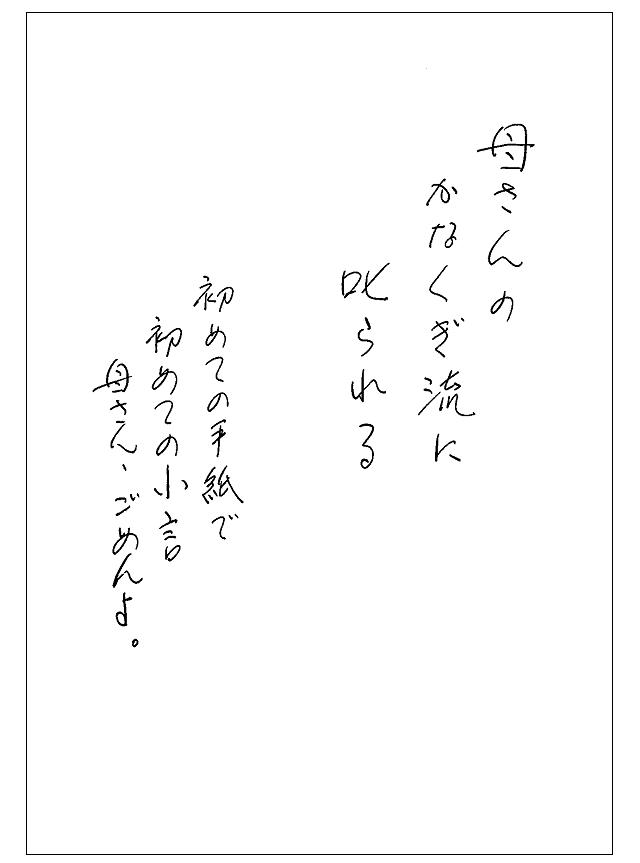 母さんの
かなくぎ流に
叱られる
初めての手紙で
初めての小言
母さん、ごめんよ。